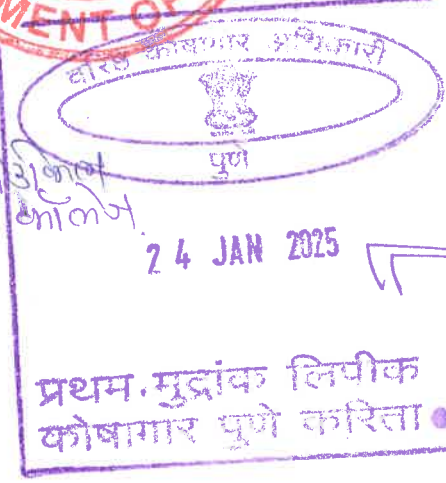 MENT OF
वरिष्ठ कोषागार अधिकारी
पुणे
24 JAN 2025
प्रथम.मुद्रांक लिपीक
कोषागार पुणे करिता